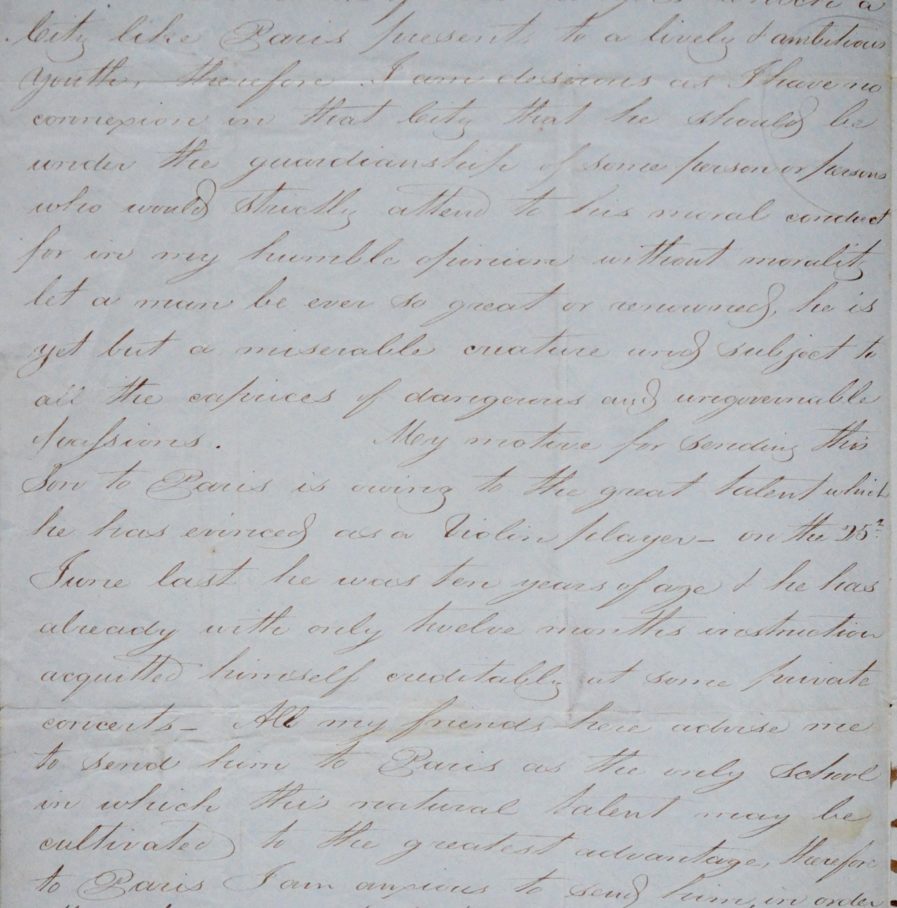 City like Paris presents to a lively & ambitious
youth, therefore I am desirous as I have no
connexion in that City that he should be
under the guardianship of some person or persons
who would strictly attend to his moral conduct
for in my humble opinion without morality
let a man be ever so great or renowned, he is
yet but a miserable creature and subject to
all the caprices of dangerous and ungovernable
passions. My motive for sending this
Son to Paris is owing to the great talent which
he has evinced as a Violin player — on the 25th
June last he was ten years of age & he has
already with only twelve months instruction
acquitted himself creditably at some private
concerts — All my friends here advise me
to send him to Paris as the only School
in which this natural talent may be
cultivated to the greatest advantage, therefore
to Paris I am anxious to send him, in order